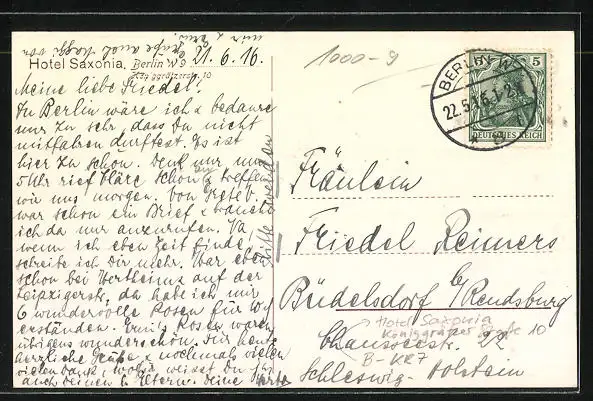 Hotel Saxonia, Berlin W 9 21.6.16.
Königgrätzerstr. 10
Meine liebe Friedel!
In Berlin wäre ich & bedaure
nur zu sehr, dass Du nicht
mitfahren durftest. Es ist
hier zu schön. Denk nur um
5 Uhr rief Kläre schon treffen
wir uns morgen. Von Grete V.
war schon ein Brief &
ich da nur anzurufen. Na
wenn ich eben Zeit finde,
schreibe ich Dir mehr. War eben
schon bei Wertheims auf der
Leipzigerstr., da habe ich mir
6 wundervolle Rosen für 10 d
erstanden. Emils Rosen waren
übrigens wunderschön. Für heute
herzliche Grüße & nochmals vielen
vielen Dank, wofür weisst Du ja
auch deinen l. Eltern. Deine
Bitte wenden
1000-9
BERLIN W
22.5.16.1-2N
* 9
5
DEUTSCHES REICH
Fräulein
Friedel Reimers
Büdelsdorf b/Rendsburg
Chausseestr. 22
Schleswig-Holstein
Hotel Saxonia
Königgrätzer Straße 10
B-KR7